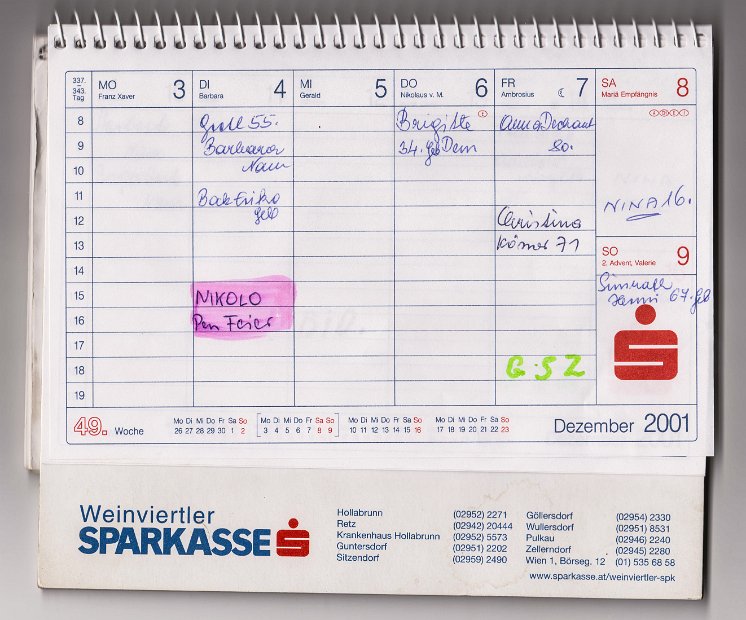 337.
343.
Tag
MO 3
Franz Xaver
DI 4
Barbara
MI 5
Gerald
DO 6
Nikolaus v. M.
FR 7
Ambrosius
SA 8
Mariä Empfängnis
8
9
10
11
12
13
14
15
16
17
18
19
55.
Barbara
Nam
geb
NIKOLO
Pen Feier
Brigitte
34. geb Dem
Anna Dechant
80.
Christina
Körner 71
G·SZ
NINA 16.
SO 9
2. Advent, Valerie
Hanni 67. geb
49. Woche
Mo Di Mi Do Fr Sa So
26 27 28 29 30 1 2
Mo Di Mi Do Fr Sa So
3 4 5 6 7 8 9
Mo Di Mi Do Fr Sa So
10 11 12 13 14 15 16
Mo Di Mi Do Fr Sa So
17 18 19 20 21 22 23
Dezember 2001
Weinviertler
SPARKASSE
Hollabrunn (02952) 2271
Retz (02942) 20444
Krankenhaus Hollabrunn (02952) 5573
Guntersdorf (02951) 2202
Sitzendorf (02959) 2490
Göllersdorf (02954) 2330
Wullersdorf (02951) 8531
Pulkau (02946) 2240
Zellerndorf (02945) 2280
Wien 1, Börseg. 12 (01) 535 68 58
www.sparkasse.at/weinviertler-spk